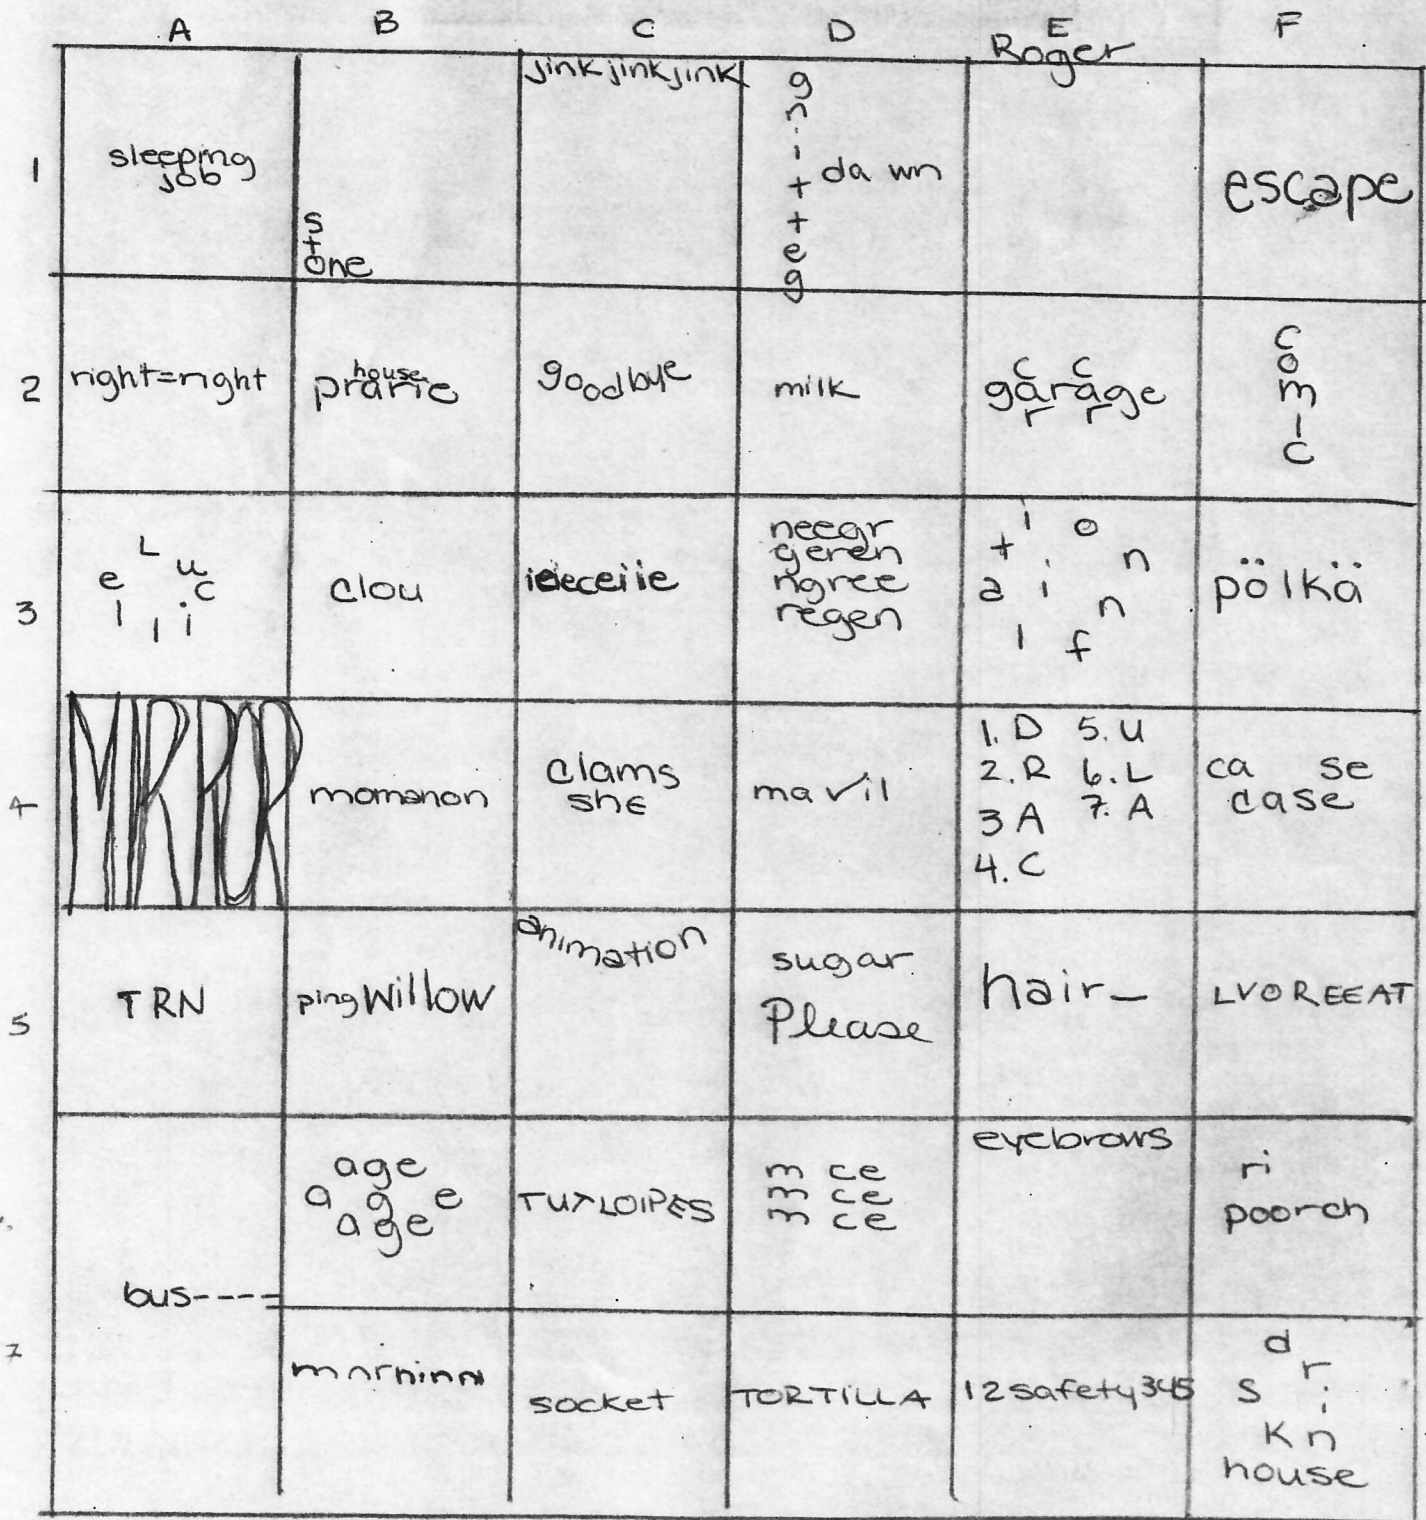 A B C D E F
Roger
1
sleeping
job
s
t
one
jinkjinkjink
g
n
i
t
t
e
g
da wn
escape
2
right=right
house
prarie
goodbye
milk
c c
garage
r r
c
o
m
i
c
3
L
e u
c
l l i
clou
neegr
geren
ngree
regen
i o
t i n
a i n
l f
pölkä
4
MIRROR
momanon
clams
she
ma vil
1. D 5. U
2. R 6. L
3 A 7. A
4. C
ca se
case
5
TRN
ping Willow
animation
sugar
Please
hair_
LVOREEAT
bus----
age
a g e
age
TUTLOIPES
m ce
m ce
m ce
eyebrows
ri
poorch
7
socket
TORTILLA
12safety345
d
s r
i
k n
house